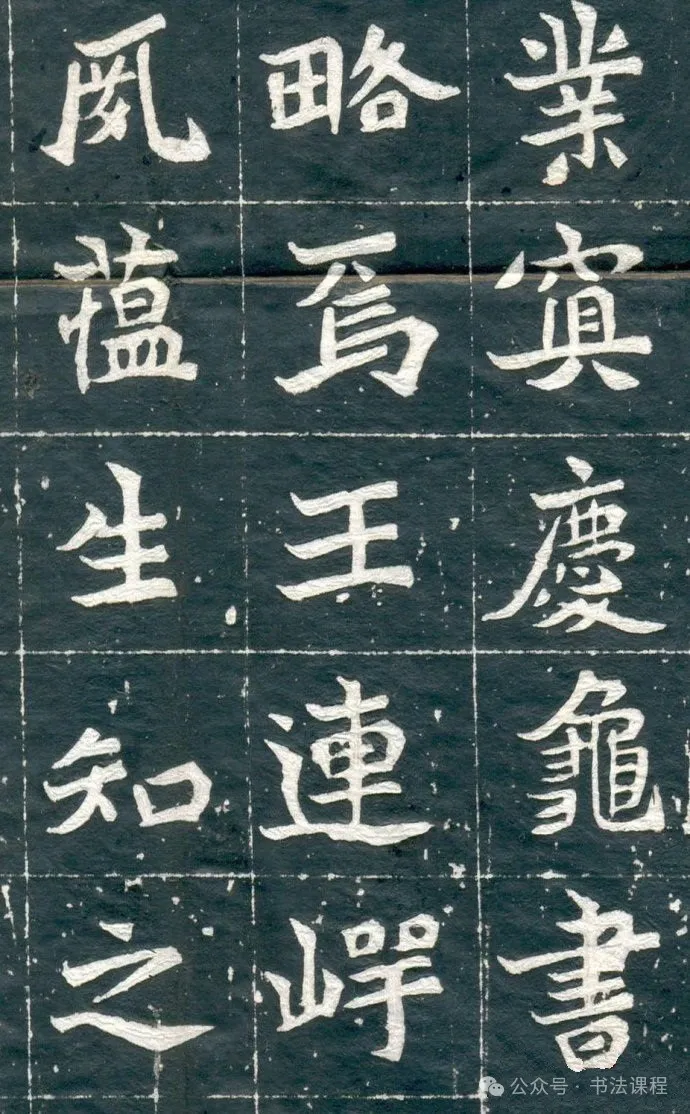 業寘慶龜書
略焉王連崿
夙蘊生知之
公众号 · 书法课程